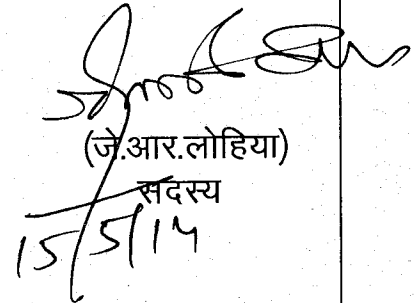 (जे.आर.लोहिया)
सदस्य
15/5/14